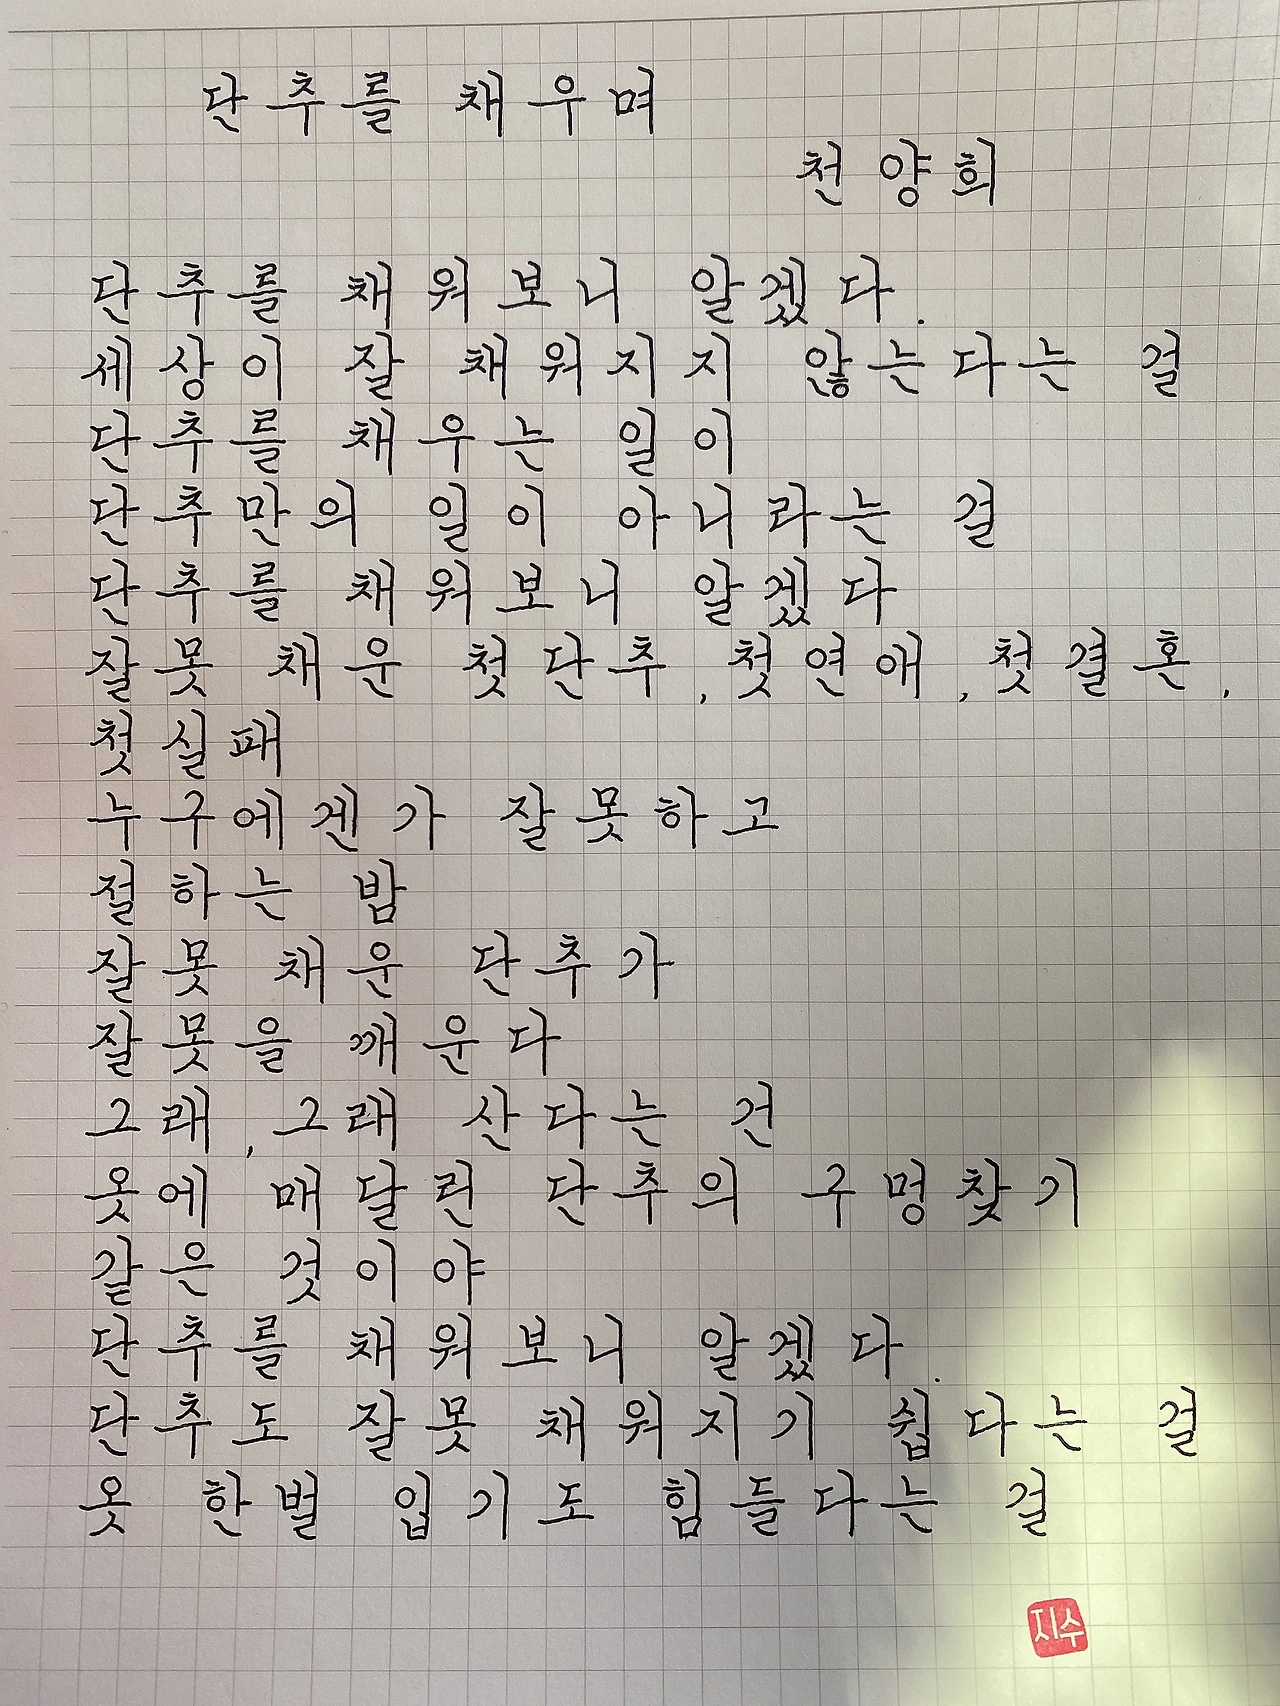 단추를 채우며
천양희
단추를 채워보니 알겠다.
세상이 잘 채워지지 않는다는 걸
단추를 채우는 일이
단추만의 일이 아니라는 걸
단추를 채워보니 알겠다
잘못 채운 첫단추, 첫연애, 첫결혼,
첫실패
누구에겐가 잘못하고
절하는 밤
잘못 채운 단추가
잘못을 깨운다
그래, 그래 산다는 건
옷에 매달린 단추의 구멍찾기
같은 것이야
단추를 채워보니 알겠다.
단추도 잘못 채워지기 쉽다는 걸
옷 한벌 입기도 힘들다는 걸
지수